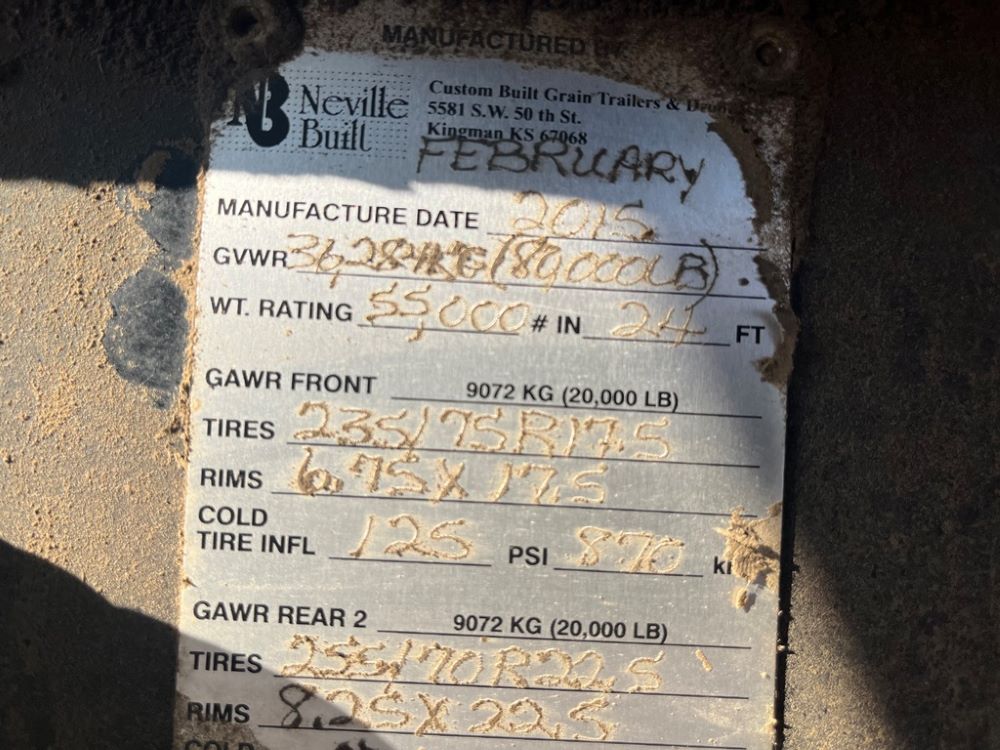 MANUFACTURED BY
NB Neville Built
Custom Built Grain Trailers &
5581 S.W. 50 th St.
Kingman KS 67068
FEBRUARY
MANUFACTURE DATE 2015
GVWR 36,287KG (80,000LB)
WT. RATING 55,000 # IN 24 FT
GAWR FRONT 9072 KG (20,000 LB)
TIRES 235/75R17.5
RIMS 6.75X17.5
COLD
TIRE INFL 125 PSI 870
GAWR REAR 2 9072 KG (20,000 LB)
TIRES 255/70R22.5
RIMS 8.25X22.5
COLD